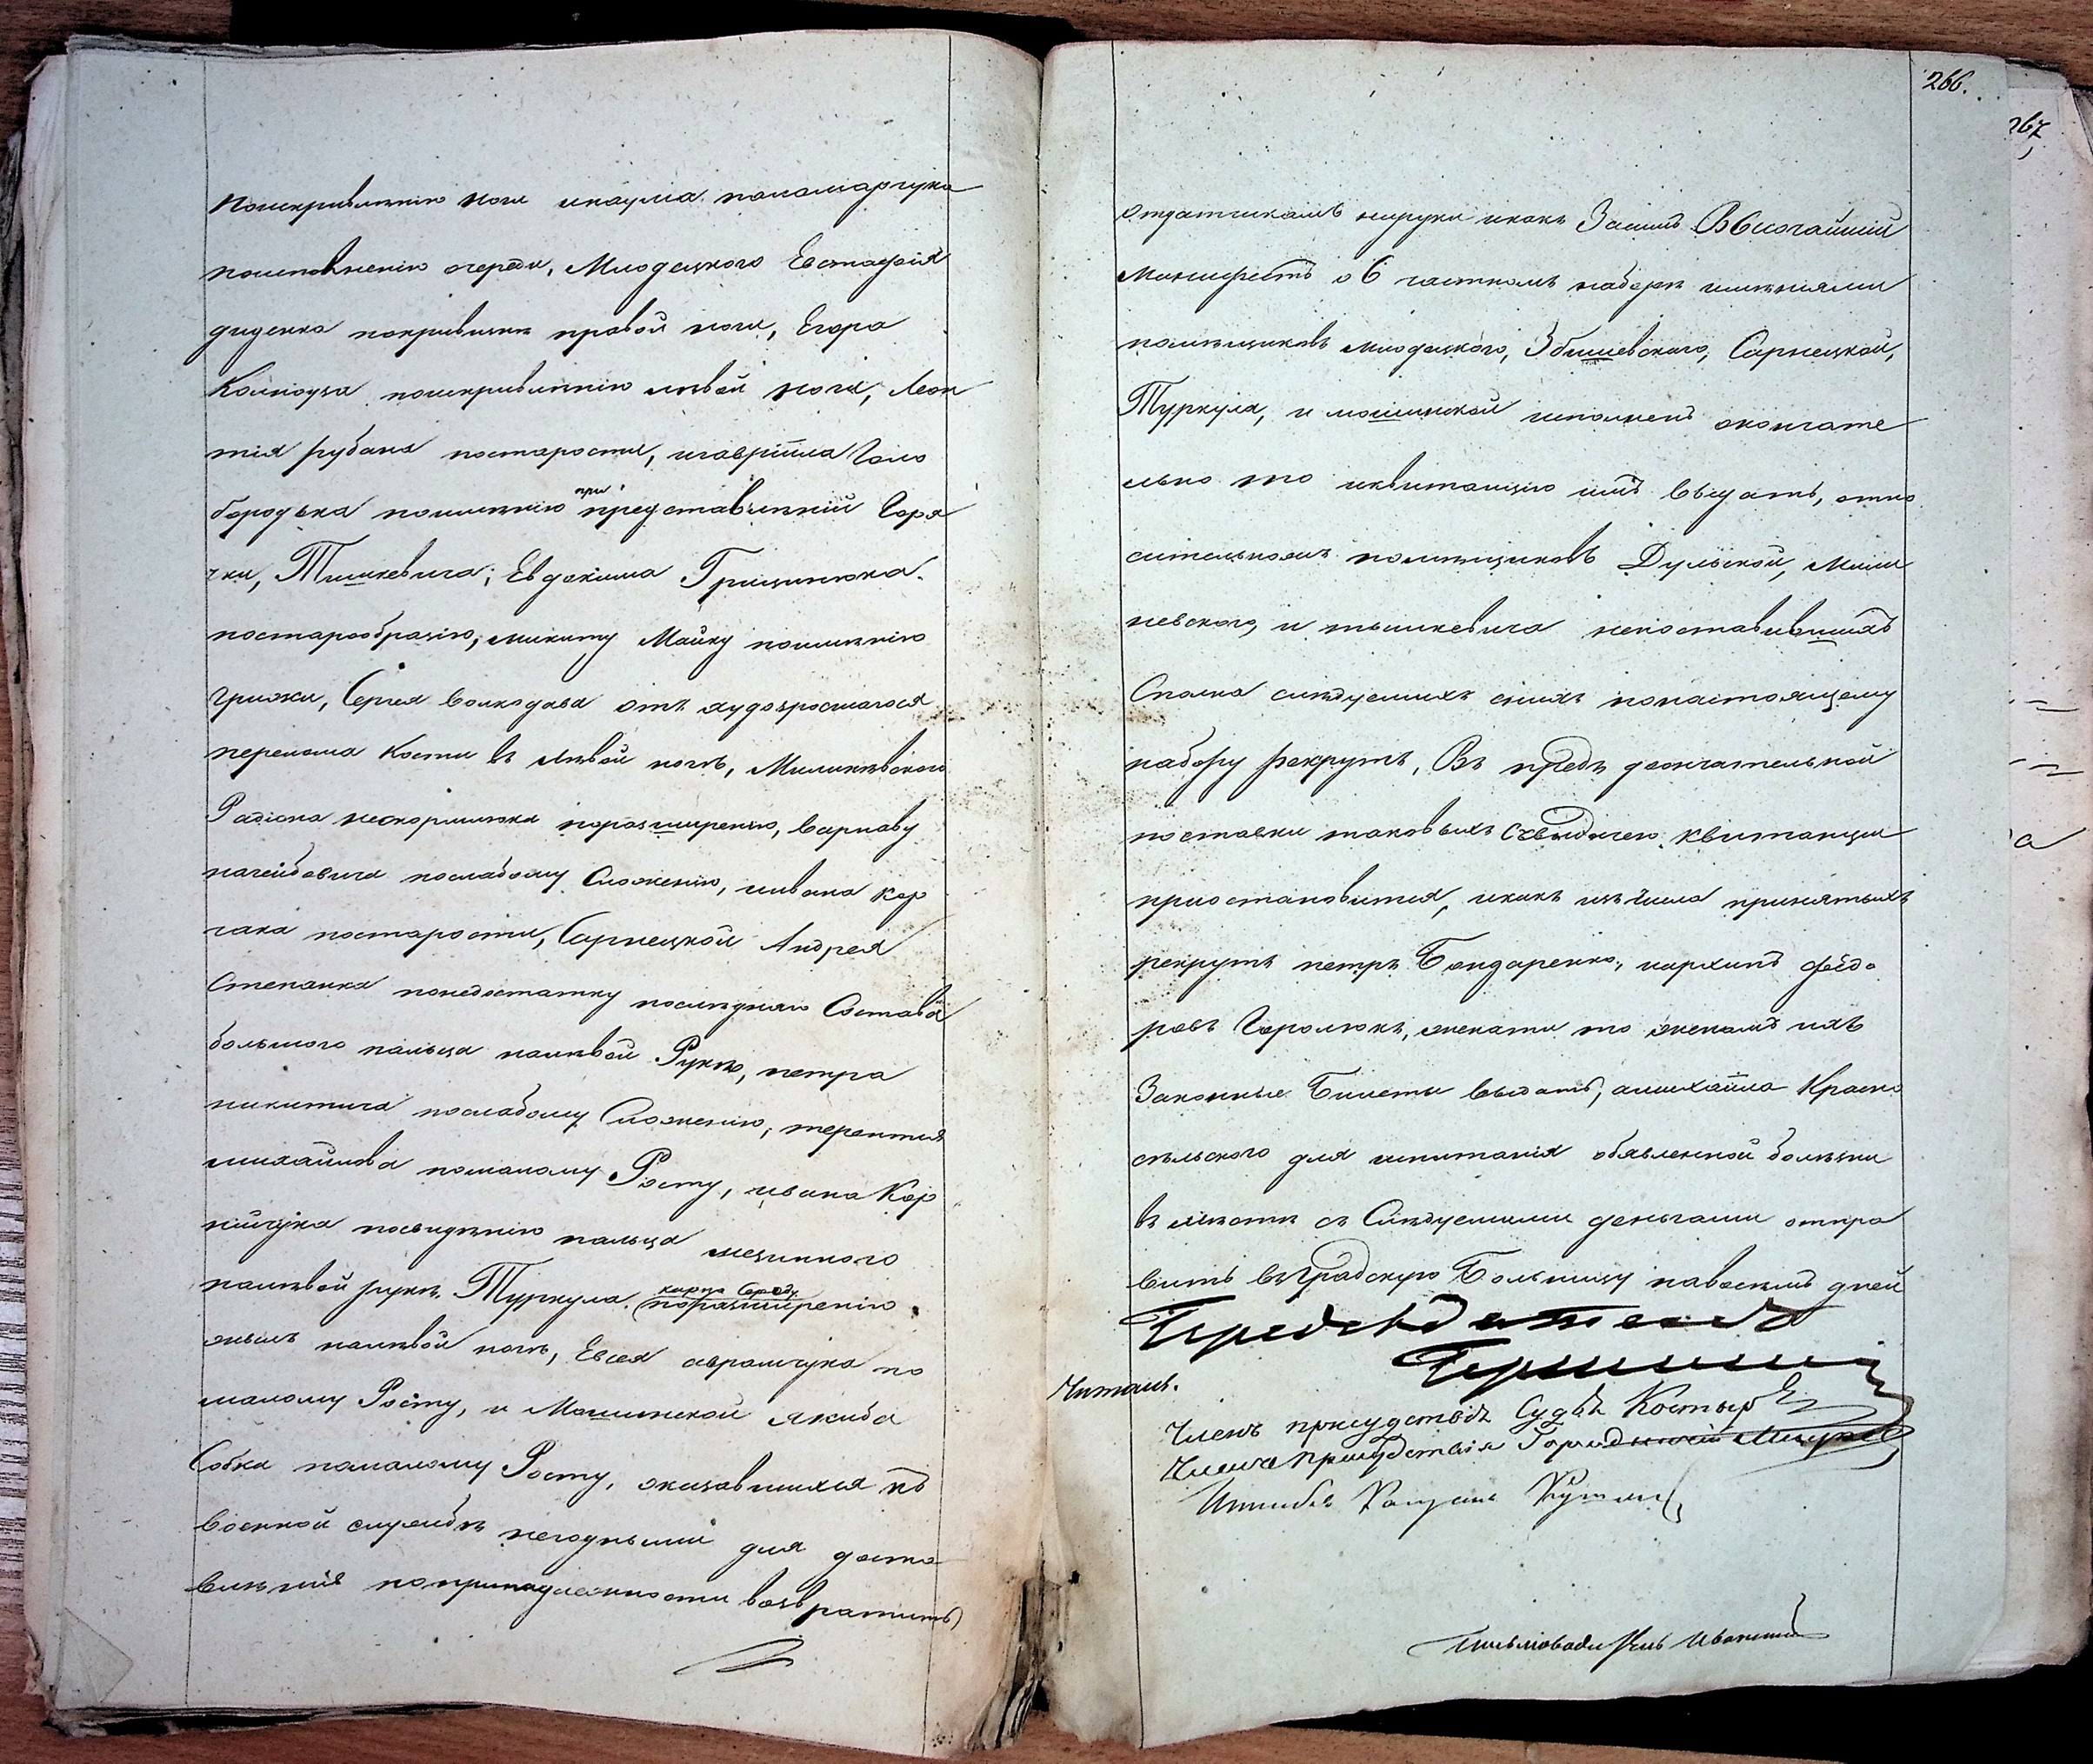 поискривленiю ноги инаума паламарчука
поисполненiю очереди, Млодецкого Евстафiя
диденка покривизнѣ правой ноги, Егора
Колподза поискривленiю лѣвой ноги, Леон
тiя рубана постарости, игаврiила Голо
бородька поимѣнiю при представленiи Горя
чки, Тишкевича; Евдокима Грицинюка
постарообразiю, микиту Майку поимѣнiю
грижи, Сергея волкодава отъ худозросшагося
перелома кости въ лѣвой ногѣ, Милинѣвского
Радiона нескормнюка поразширенiю, варнаву
слабому Сложенiю, иивана кор
чака постарости, Сарнецкой Андрея
Степанка понедостатку послѣдняго Состава
большого пальца налѣвой Рукѣ, петра
никитича послабому Сложенiю, терентия
михайлова помалому Росту, ивана Кор
нiйчука посведѣнiю пальца мезинного
налѣвой рукѣ. Туркула поразширенiю
жилъ налѣвой ногѣ, Евсея аврамчука по
малому Росту, и Мошинской якива
Собка помалому Росту, оказавшихся къ
военной службѣ негодными для доста
вленiя попринадлежности возвратить
266.
267
отдатчикамъ наруки икакъ Засимъ Высочайшiй
Манифестъ о 6 частномъ наборѣ имѣнiями
помѣщиковъ млодецкого, Збышевского, Сарнецкой,
Туркула, и мошинской исполненъ окончате
льно то иквитанцiю имъ выдать, отно
сительножъ помѣщиковъ Дульской, Мили
невского, и тышкевича непоставившихъ
Сполна слѣдуемихъ снихъ понастоящему
набору рекрутъ, Въ предь доокончательной
поставки таковыхъ Свыдачею квитанцiи
приостановится, икакъ изъ числа принятыхъ
рекрутъ петръ Бондаренко, иархипъ федо
ровъ Горолюкъ, женати то женамъ ихъ
Законные Билеты выдать, амихайла Красно
сѣльского для испитанiя обявленной болѣзни
въ мѣстѣ съ Слѣдуемими деньгами отпра
вить въ Градскую Больницу навосемь дней
Председатель
Читалъ.
Членъ присудствiя Судья
Членъ присудствiя Городничiй
Письмоводитель